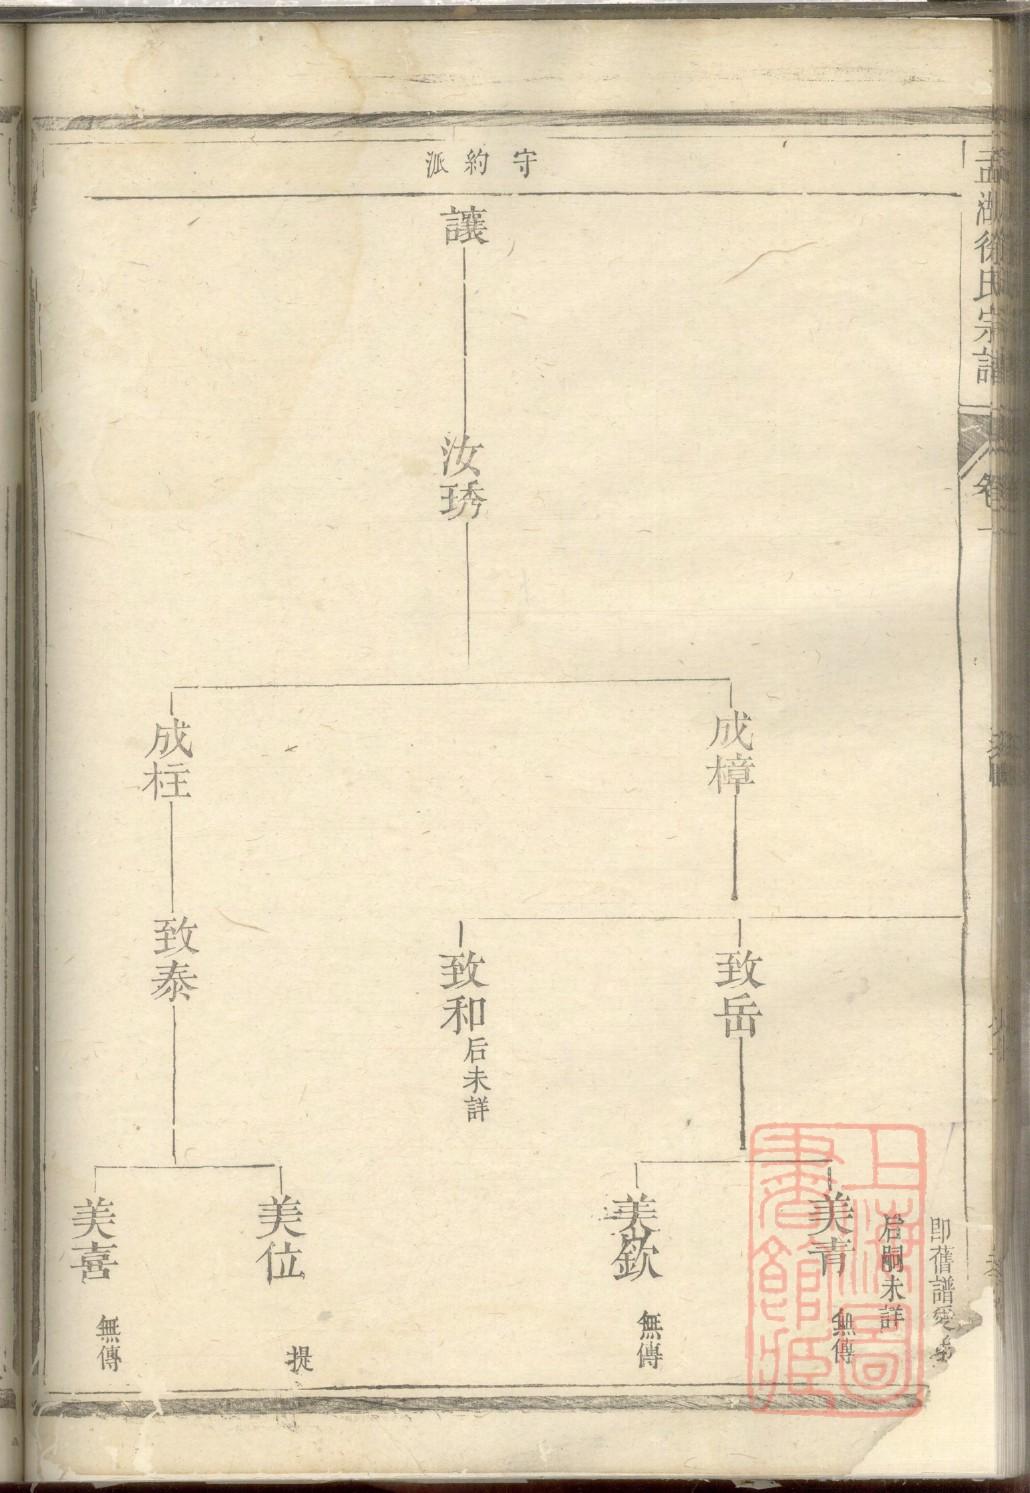 孟湖徐氏宗譜
卷一
守約派
讓
汝琇
成樟
成柱
致岳
致和 后未詳
致泰
即舊譜
后嗣未詳
美青 無傳
美欽 無傳
美位 提
美喜 無傳
上海圖書館藏